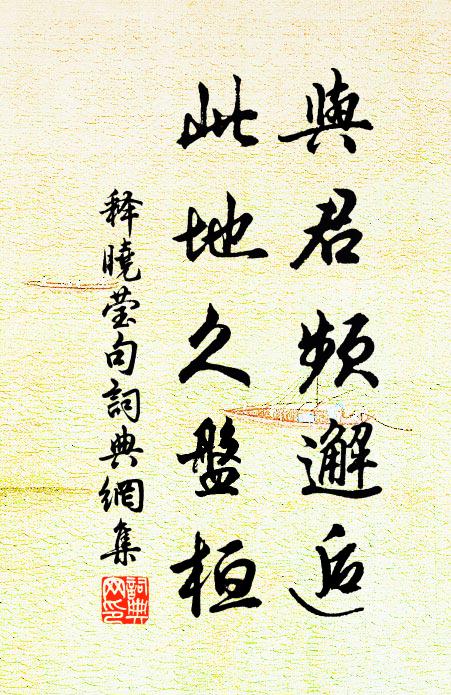 與君頻邂逅
此地久盤桓
释曉莹句詞典網集
詞典网印